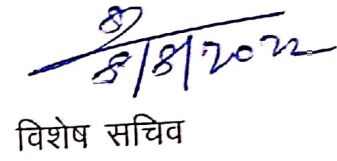 8/8/2022
विशेष सचिव